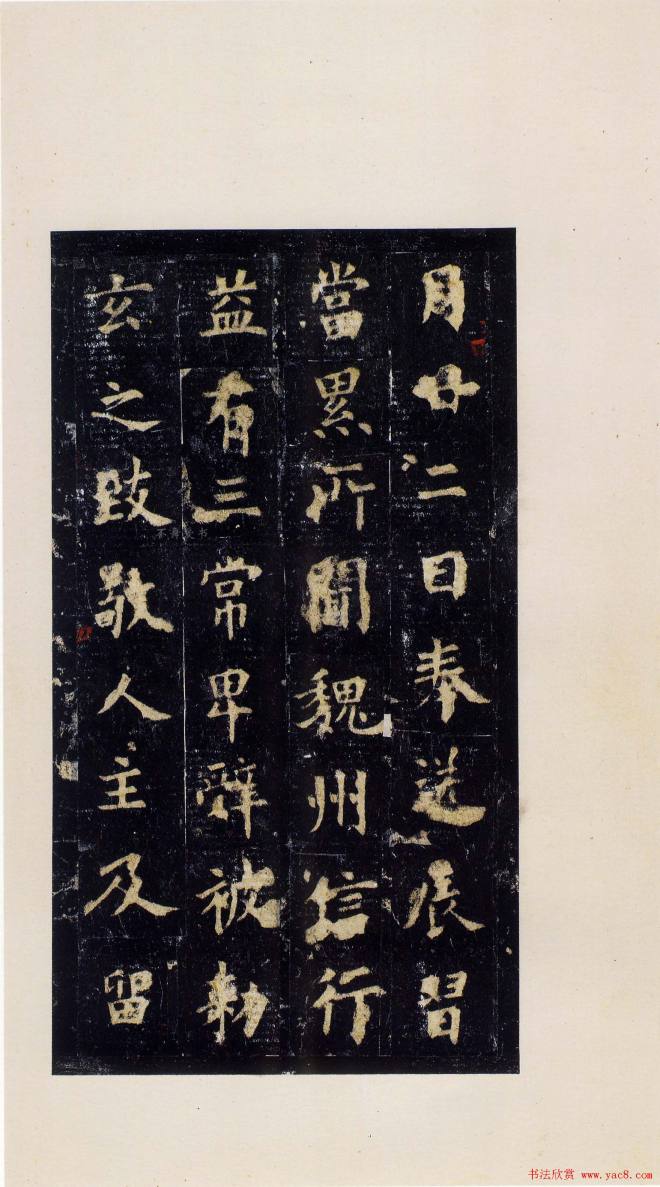 月廿二日奉送展習
當累所聞魏州信行
益有三常卑辭被勅
玄之致敬人主及留
书法欣赏 www.yac8.com